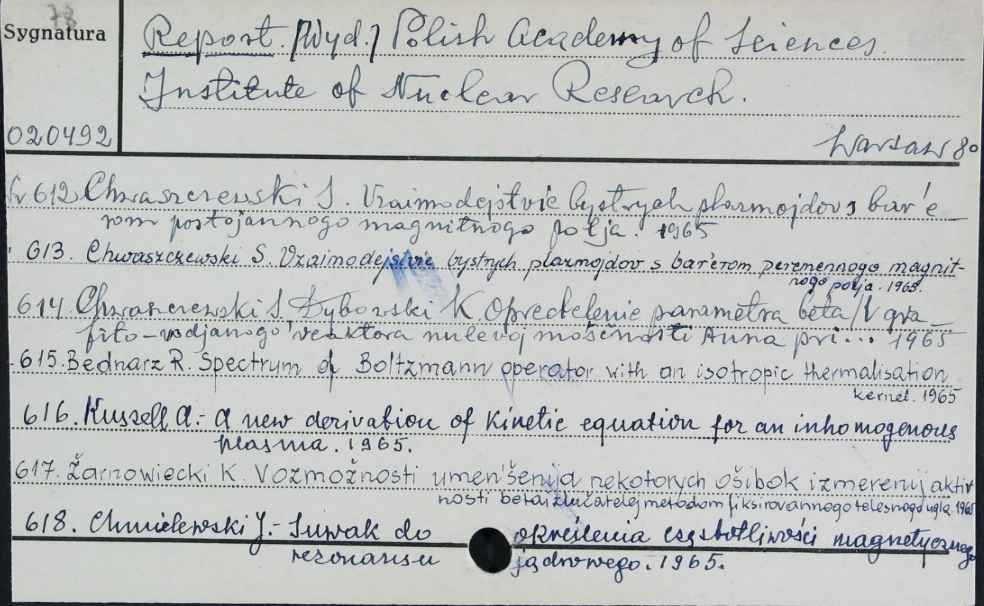 78
Sygnatura
Report. /Wyd./ Polish Academy of Sciences.
Institute of Nuclear Research.
020492
Warsaw 8°
Nr 612 Chwaszczewski S. Vzaimodejstvie bystrych plazmojdov s bar'e-
rom postojannogo magnitnogo polja. 1965
613. Chwaszczewski S. Vzaimodejstvie bystrych plazmojdov s bar'erom peremennogo magnit-
nogo polja. 1965.
614. Chwaszczewski S. Dybowski K. Opredelenie parametra beta/l gra-
fito-vodjanogo reaktora nulevoj moščnosti Anna pri... 1965
615. Bednarz R. Spectrum of Boltzmann operator with an isotropic thermalisation
kernel. 1965
616. Kussell A.- A new derivation of kinetic equation for an inhomogenous
plasma. 1965.
617. Żarnowiecki K. Vozmožnosti umen'šenija nekotorych ošibok izmerenij aktiv
nosti beta izlučatelej metodom fiksirovannogo telesnogo ugla. 1965
618. Chmielewski J.- Suwak do określenia częstotliwości magnetycznego
rezonansu jądrowego. 1965.